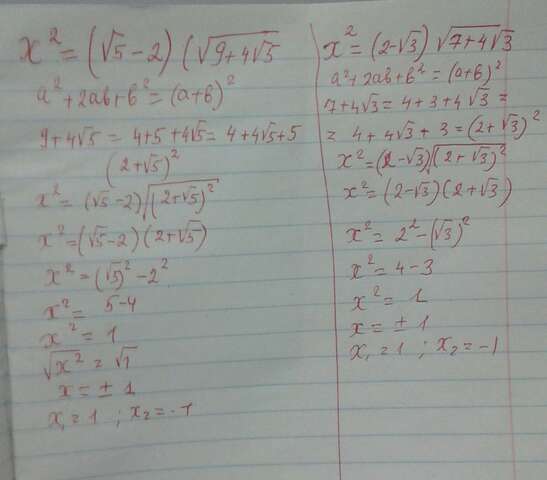 x² = (√5 - 2) (√9+4√3
a² + 2ab + b² = (a+b)²
9+4√5 = 4+5+4√5 = 4+4√5+5
(2+√5)²
x² = (√5-2)√(2+√5)²
x² = (√5-2)(2+√5)
x² = (√5)² - 2²
x² = 5-4
x² = 1
√x² = √1
x = ± 1
x₁ = 1 ; x₂ = -1
x² = (2-√3) √7+4√3
a²+2ab+b² = (a+b)²
7+4√3 = 4+3+4√3 =
= 4+4√3+3 = (2+√3)²
x² = (2-√3)√(2+√3)²
x² = (2-√3)(2+√3)
x² = 2² - (√3)²
x² = 4-3
x² = 1
x = ± 1
x₁ = 1 ; x₂ = -1